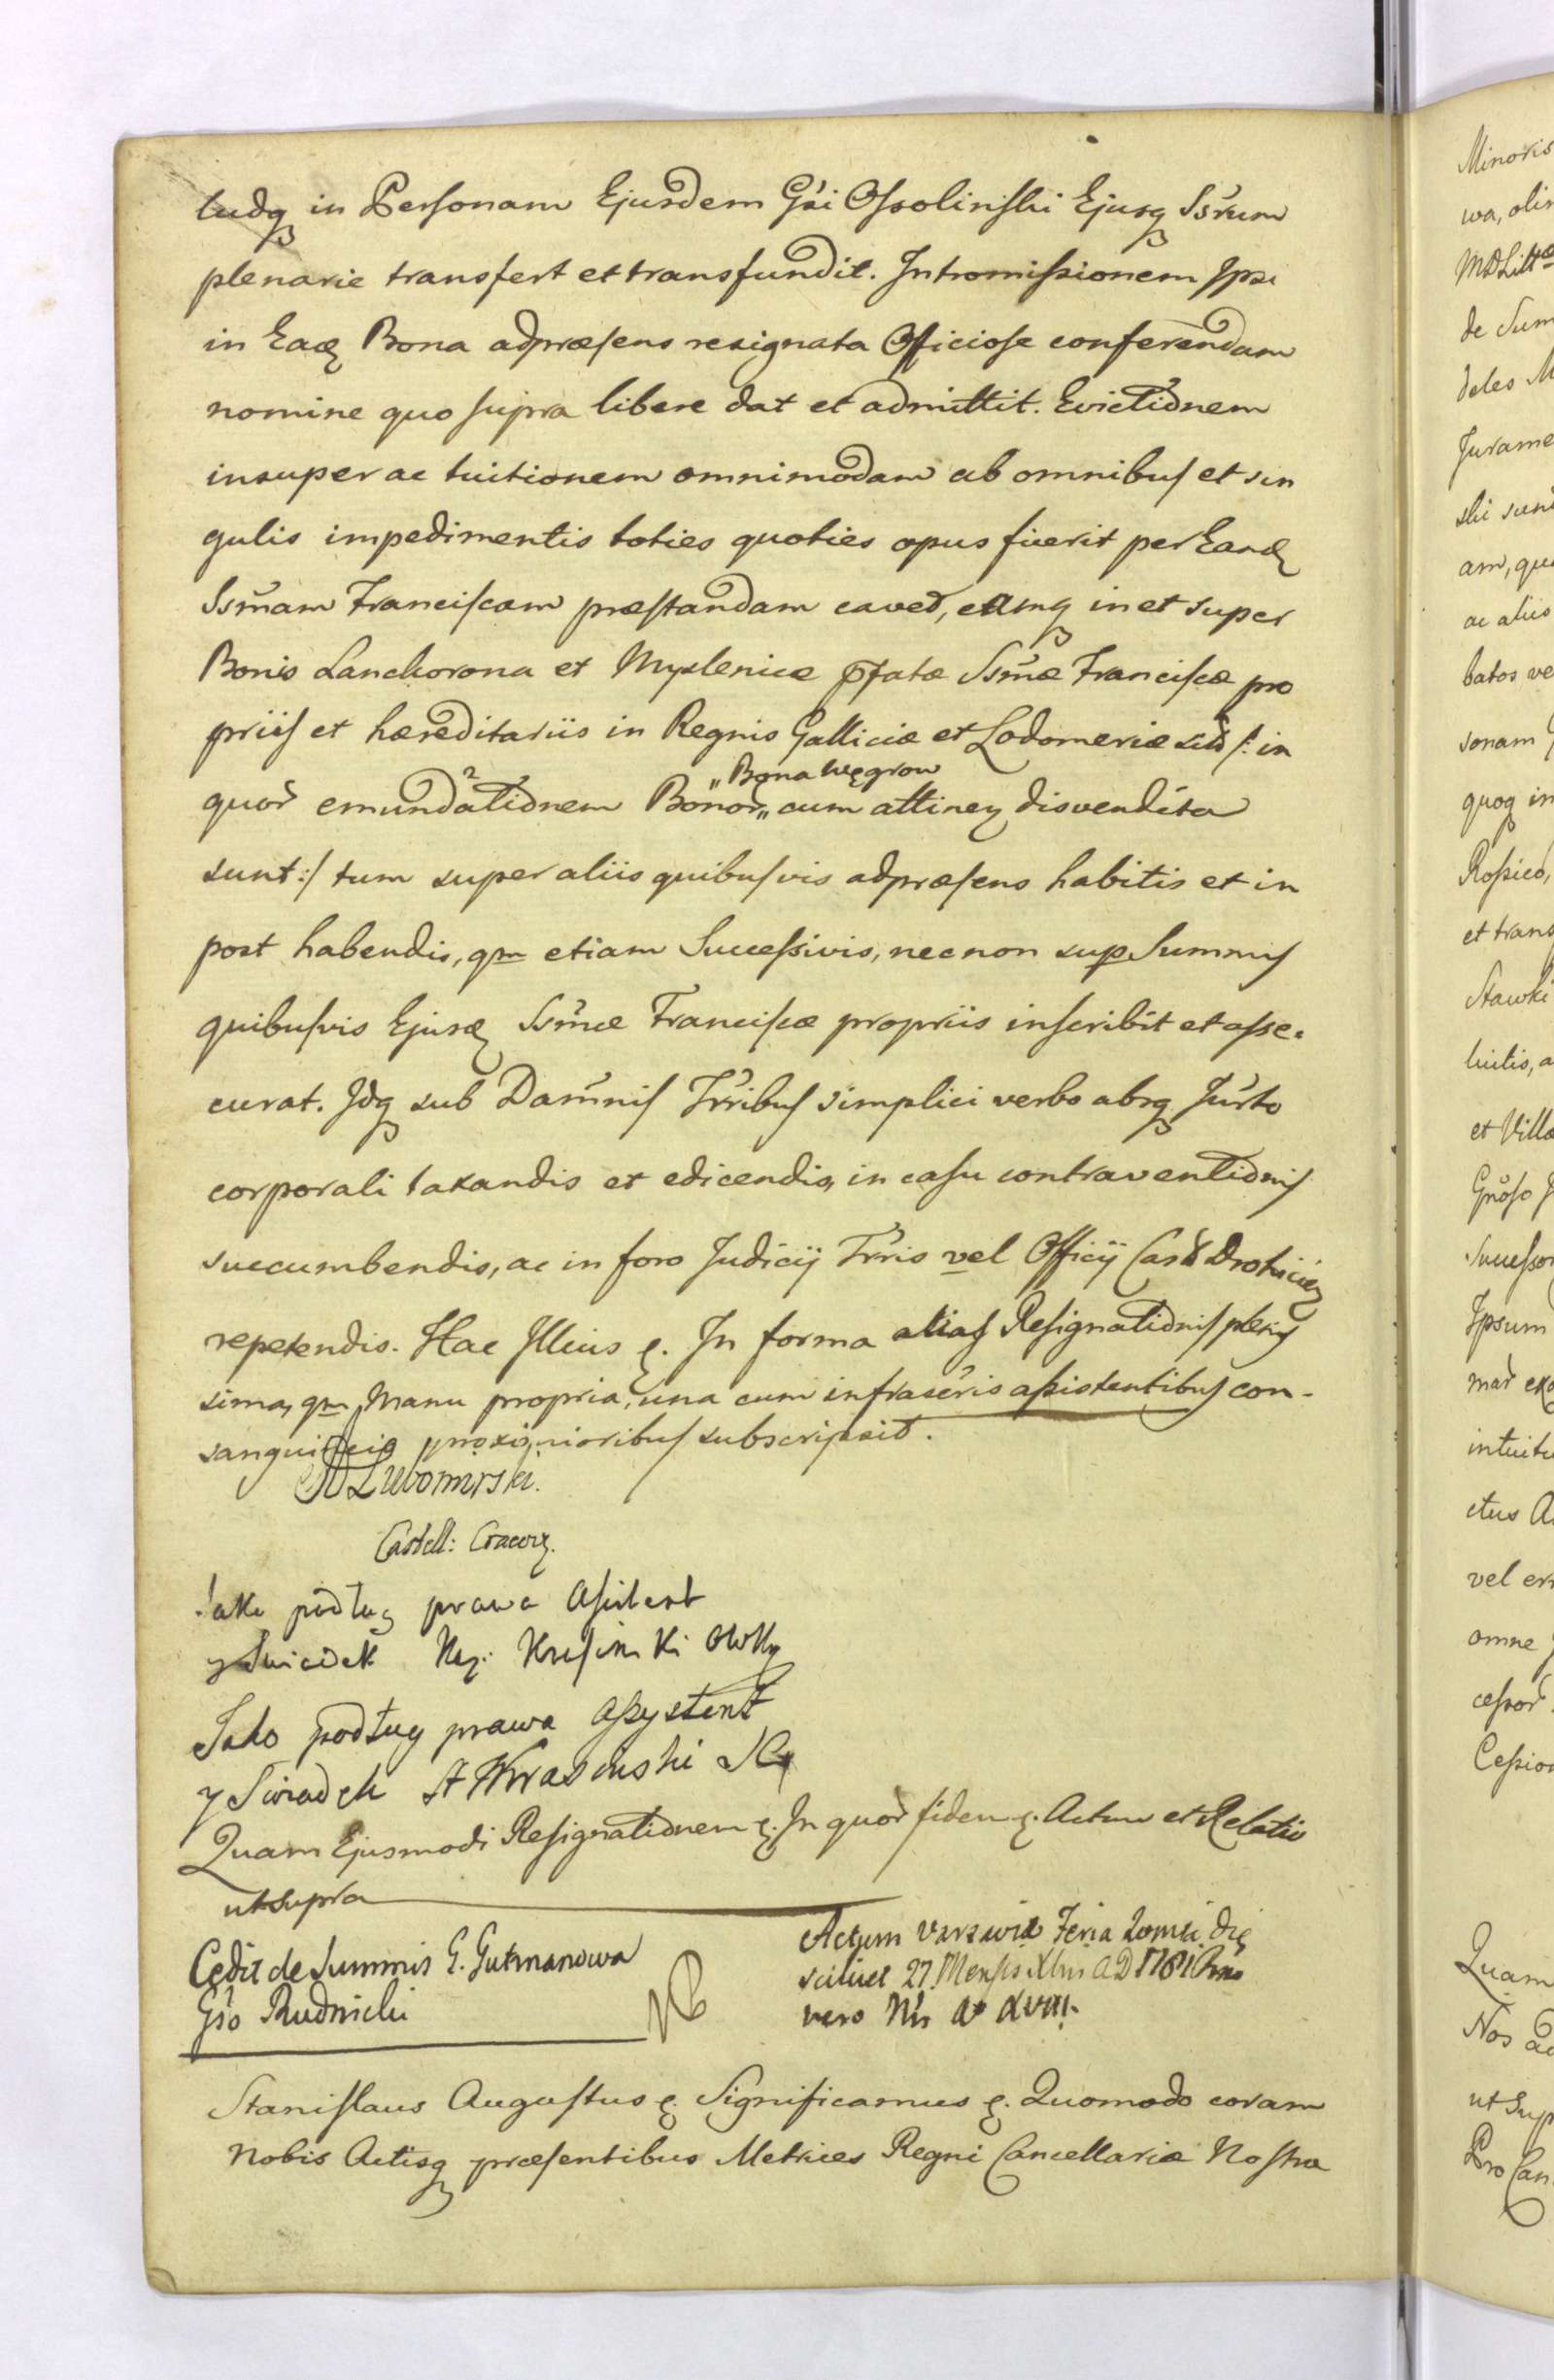 tudq in Personam Ejusdem Gsi Ossolinski Ejusq Ssrum
plenarie transfert et transfundit. Intromissionem Ipsi
in Ead Bona adpræsens resignata Officiose conferendam
nomine quo supra libere dat et admittit. Evictionem
insuper ac tuitionem omnimodam ab omnibus et sin
gulis impedimentis toties quoties opus fuerit per Eand
Ssmam Franciscam præstandam cavet, eamq in et super
Bonis Lanckorona et Myslenice pfatæ Ssmæ Franciscæ pro
priis et hæreditariis in Regnis Galliciæ et Lodomeriæ sitis /: in
quor emundationem Bonor „Bona Węgrow„ cum attinen disvendita
sunt :/ tum super aliis quibusvis adpræsens habitis et in
post habendis, qm etiam Successivis, necnon sup Summis
quibusvis Ejusd Ssmæ Franciscæ propriis inscribit et asse-
curat. Idq sub Damnis Trribus simplici verbo absq Jurto
corporali taxandis et edicendis, in casu contraventionis
succumbendis, ac in foro Judicij Trris vel Officij Castr Drohicien
repetendis. Hac Illius &. In forma alias Resignationis plenis
sima, qm Manu propria, una cum infrascris assistentibus con-
sanguineis proximioribus subscripsit.
A Lubomirski.
Castell: Cracov.
Jako podług prawa Assistent
y Swiadek Krasinski OWK
Jako podług prawa Assystent
y Swiadek A Krasinski
Quam Ejusmodi Resignationem &. In quor fidem &. Actum et Relatio
ut supra
Cedit de Summis G. Gutmanowa
Gso Rudnicki
Actum Varsaviæ Feria die
scilicet 27 Mensis Xbris AD 1781 Rmo
vero Nri Ao XVIII.
Stanislaus Augustus &. Significamus &. Quomodo coram
Nobis Actisq præsentibus Metrices Regni Cancellariæ Nostræ
Minoris
wa, olim
de Sum
deles M
Jurame
ski sunt
am, qu
ac aliis
batos ve
sonam G
quoq in
Rossico,
et trans
Stawki
luitis, a
et Villa
Gnoso J
Successor
Ipsum
intuitu
ctus A
vel
omne
cessor
Cession
Quam
Nos
ut Sup
Pro Can